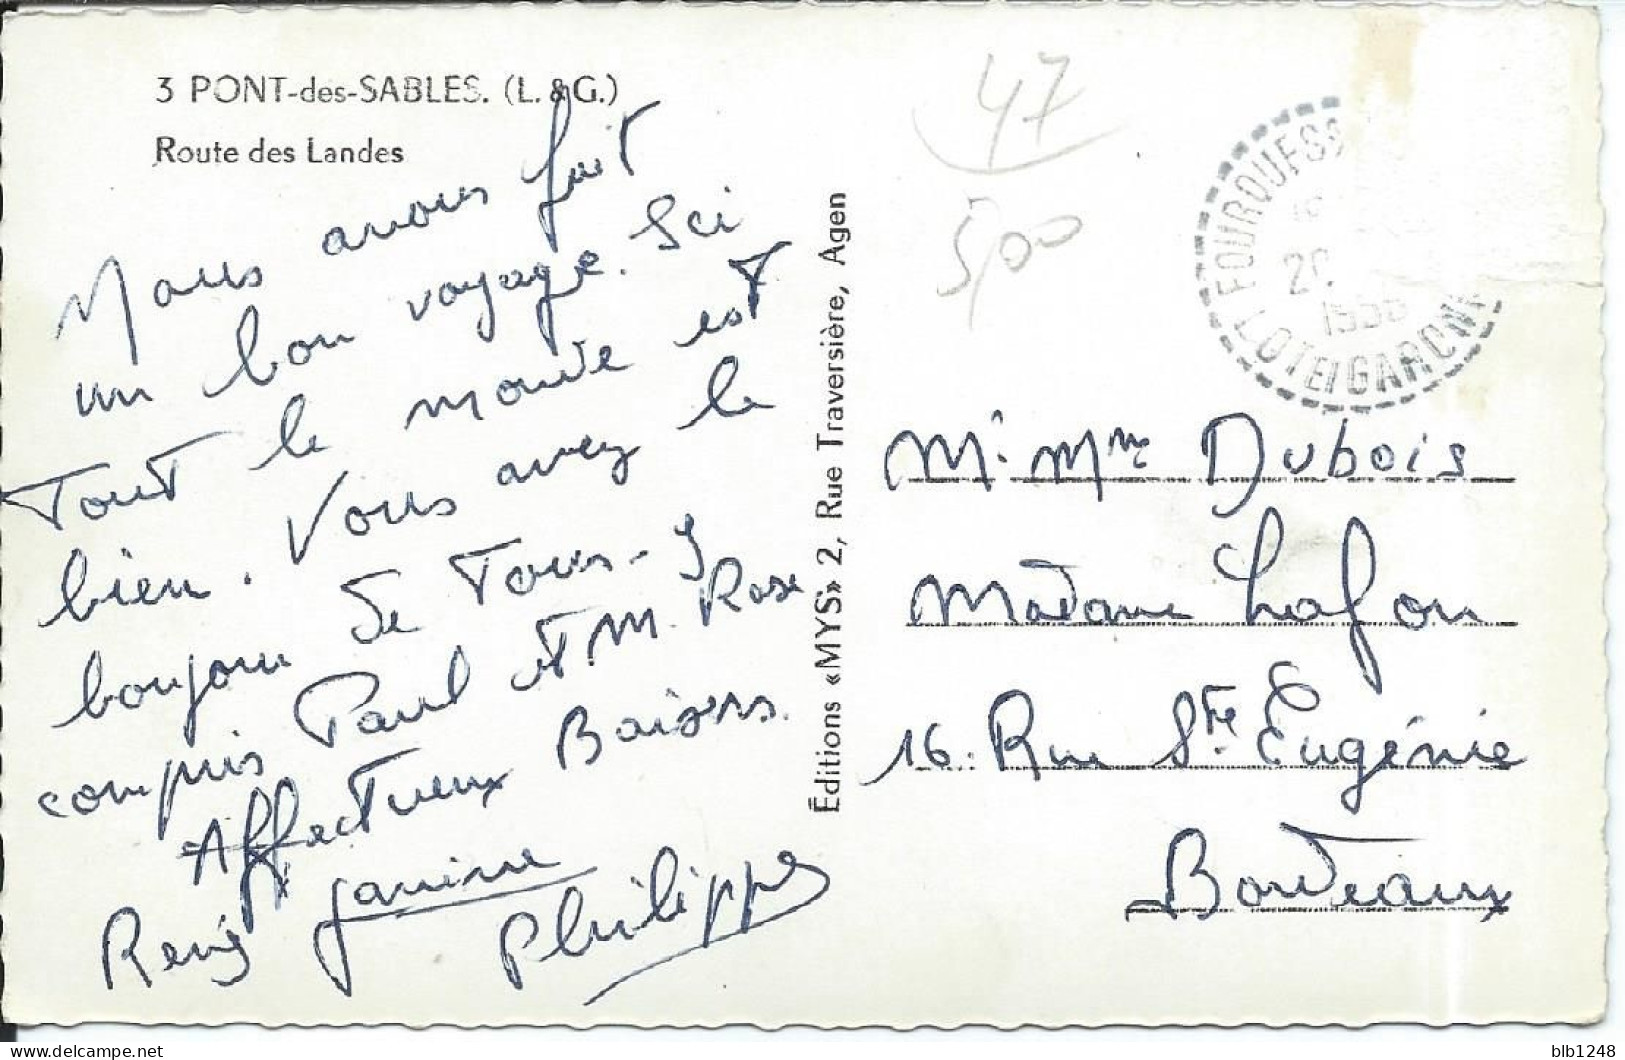 3 PONT-des-SABLES. (L. & G.)
Route des Landes
Nous avons fait
un bon voyage. Ici
Tout le monde est
bien. Vous avez le
bonjour de Tous - Y
compris Paul et M. Rose
Affectueux Baisers.
René Janine
Philippe
Éditions «MYS» 2, Rue Traversière, Agen
47
500
FOURQUES
20
LOT ET GARONNE
Mr Mme Dubois
Madame Lafon
16. Rue Ste Eugénie
Bordeaux
blb1248